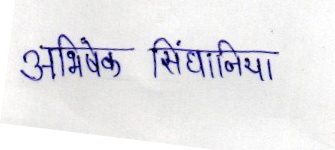 अभिषेक सिंघानिया